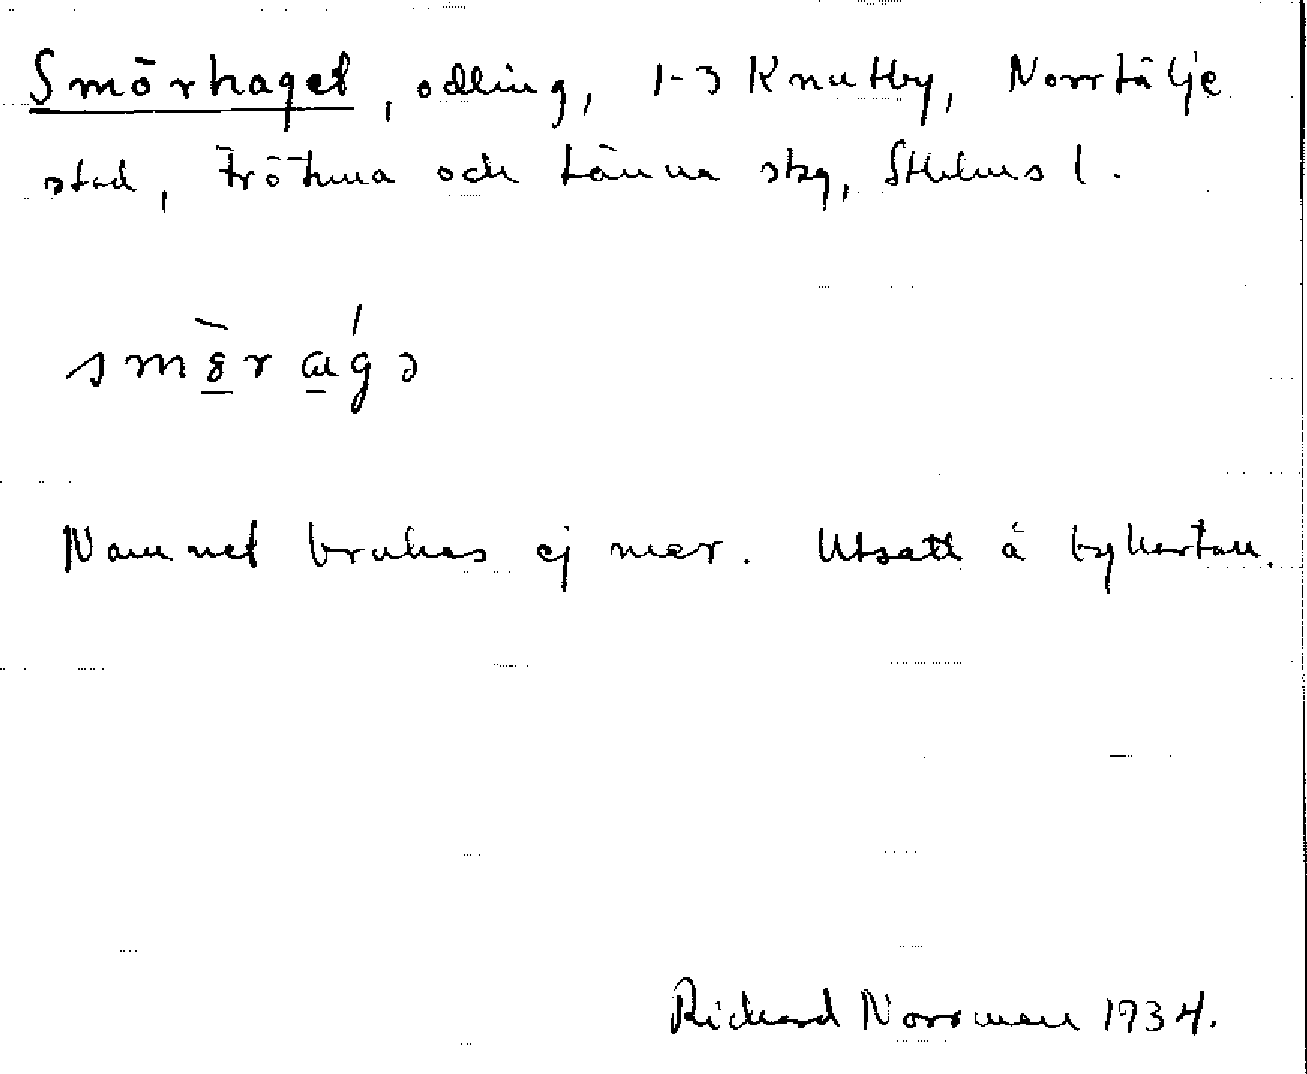 Smörhaget, odling, 1-3 Knutby, Norrtälje
stad, Frötuna och Länna skg, Sthlms l.
Namnet brukas ej mer. Utsatt å bykartan.
Richard Norrman 1934.